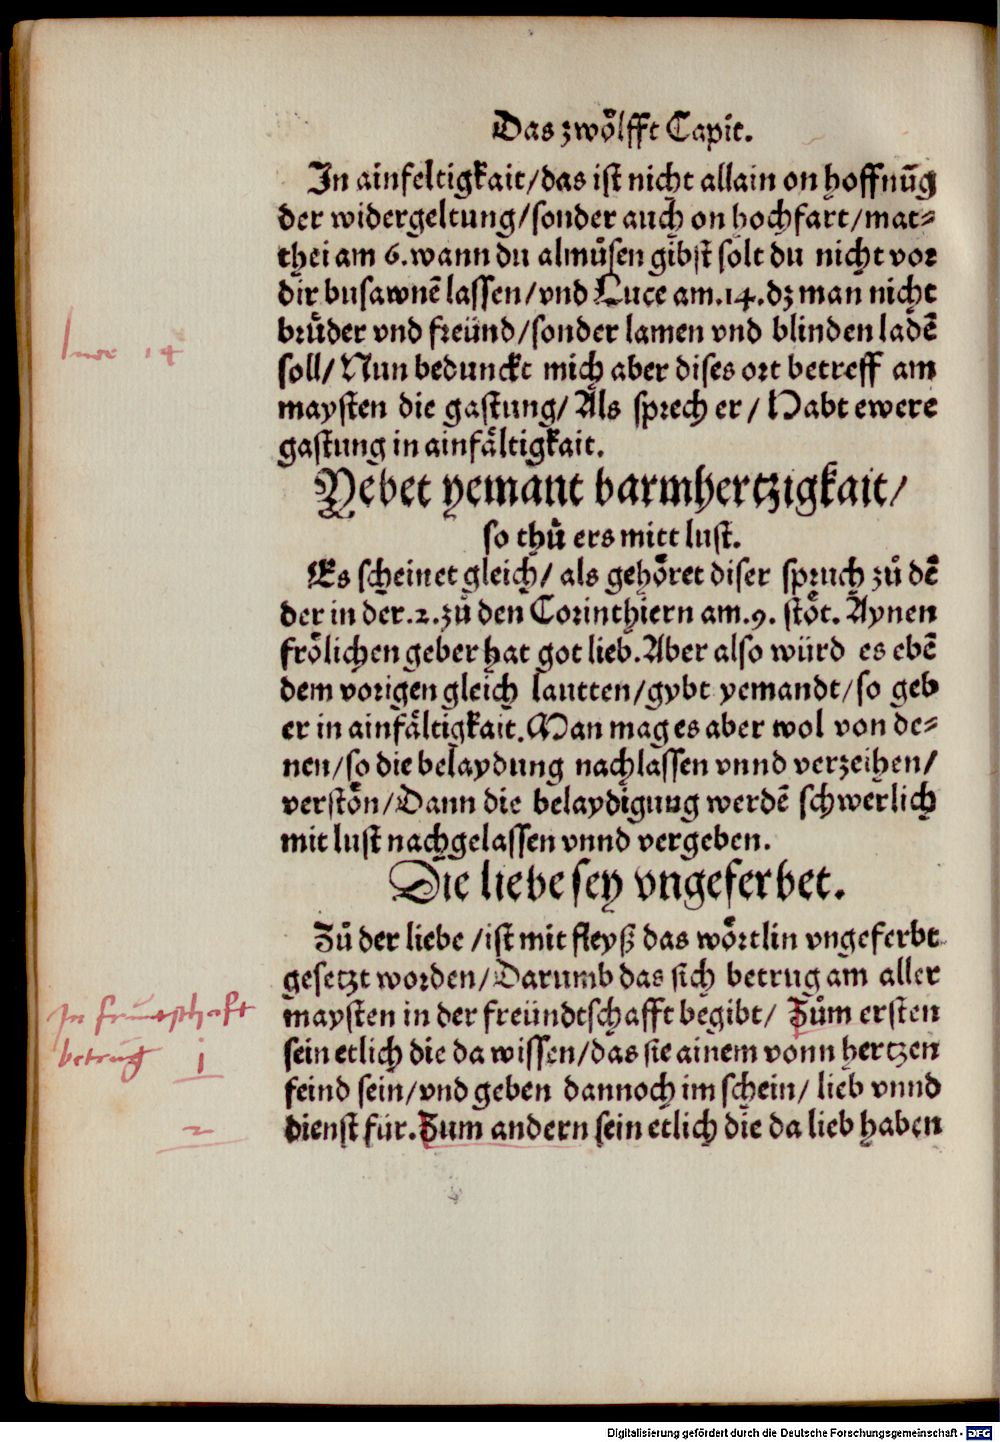 Das zwoͤlfft Capit.
In ainfeltigkait/das ist nicht allain on hoffnūg
der widergeltung/sonder auch on hochfart/mat-
thei am 6.wann du almuͤsen gibst solt du nicht vor
dir busawnē lassen/vnd Luce am.14.dz man nicht
bruͤder vnd freünd/sonder lamen vnd blinden ladē
soll/Nun bedunckt mich aber dises ort betreff am
maysten die gastung/Als sprech er/Habt ewere
gastung in ainfaͤltigkait.
Yebet yemant barmhertzigkait/
so thuͤ ers mitt lust.
Es scheinet gleich/als gehoͤret diser spruch zuͦ dē
der in der.2.zuͦ den Corinthiern am.9. stoͤt. Aynen
froͤlichen geber hat got lieb.Aber also würd es ebē
dem vorigen gleich lautten/gybt yemandt/so geb
er in ainfaͤltigkait.Man mag es aber wol von de-
nen/so die belaydung nachlassen vnnd verzeihen/
verstoͤn/Dann die belaydigung werdē schwerlich
mit lust nachgelassen vnnd vergeben.
Die liebe sey vngeferbet.
Zuͦ der liebe/ist mit fleyß das woͤrtlin vngeferbt
gesetzt worden/Darumb das sich betrug am aller
maysten in der freündtschafft begibt/Zuͦm ersten
sein etlich die da wissen/das sie ainem vonn hertzen
feind sein/vnd geben dannoch im schein/lieb vnnd
dienst für.Zum andern sein etlich die da lieb haben
luce 14
In fruntschaft
betrug 1
2
Digitalisierung gefördert durch die Deutsche Forschungsgemeinschaft - DFG